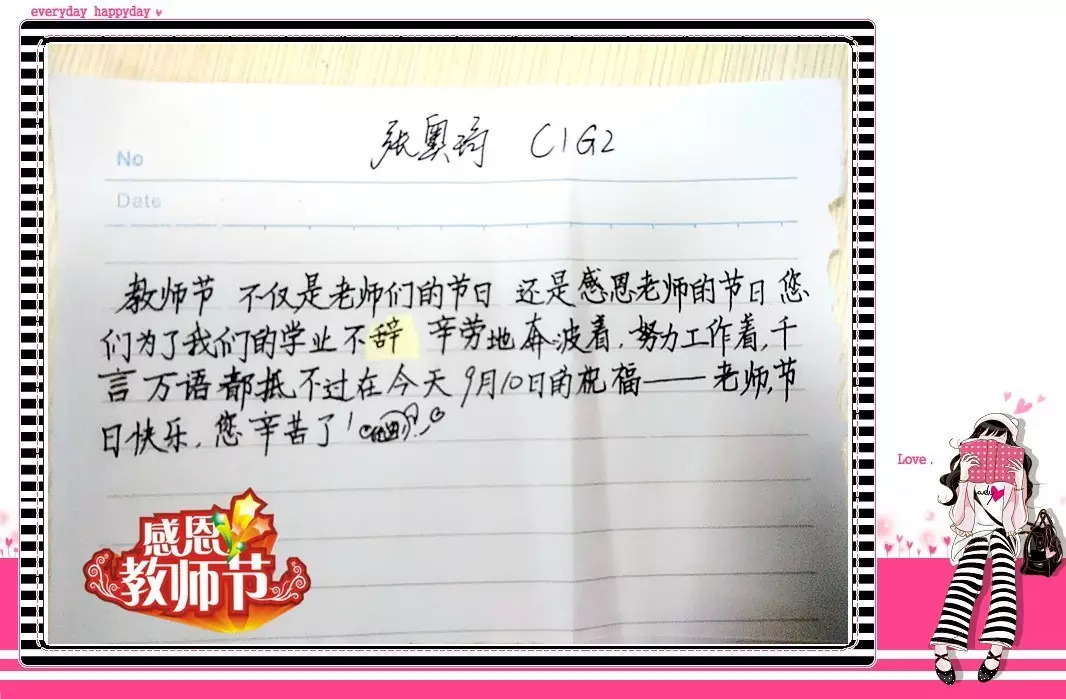 everyday happyday
张奥琦 C1G2
No
Date
教师节 不仅是老师们的节日 还是感恩老师的节日 您
们为了我们的学业不辞 辛劳地奔波着,努力工作着,千
言万语都抵不过在今天9月10日的祝福——老师,节
日快乐,您辛苦了!
感恩
教师节
Love.